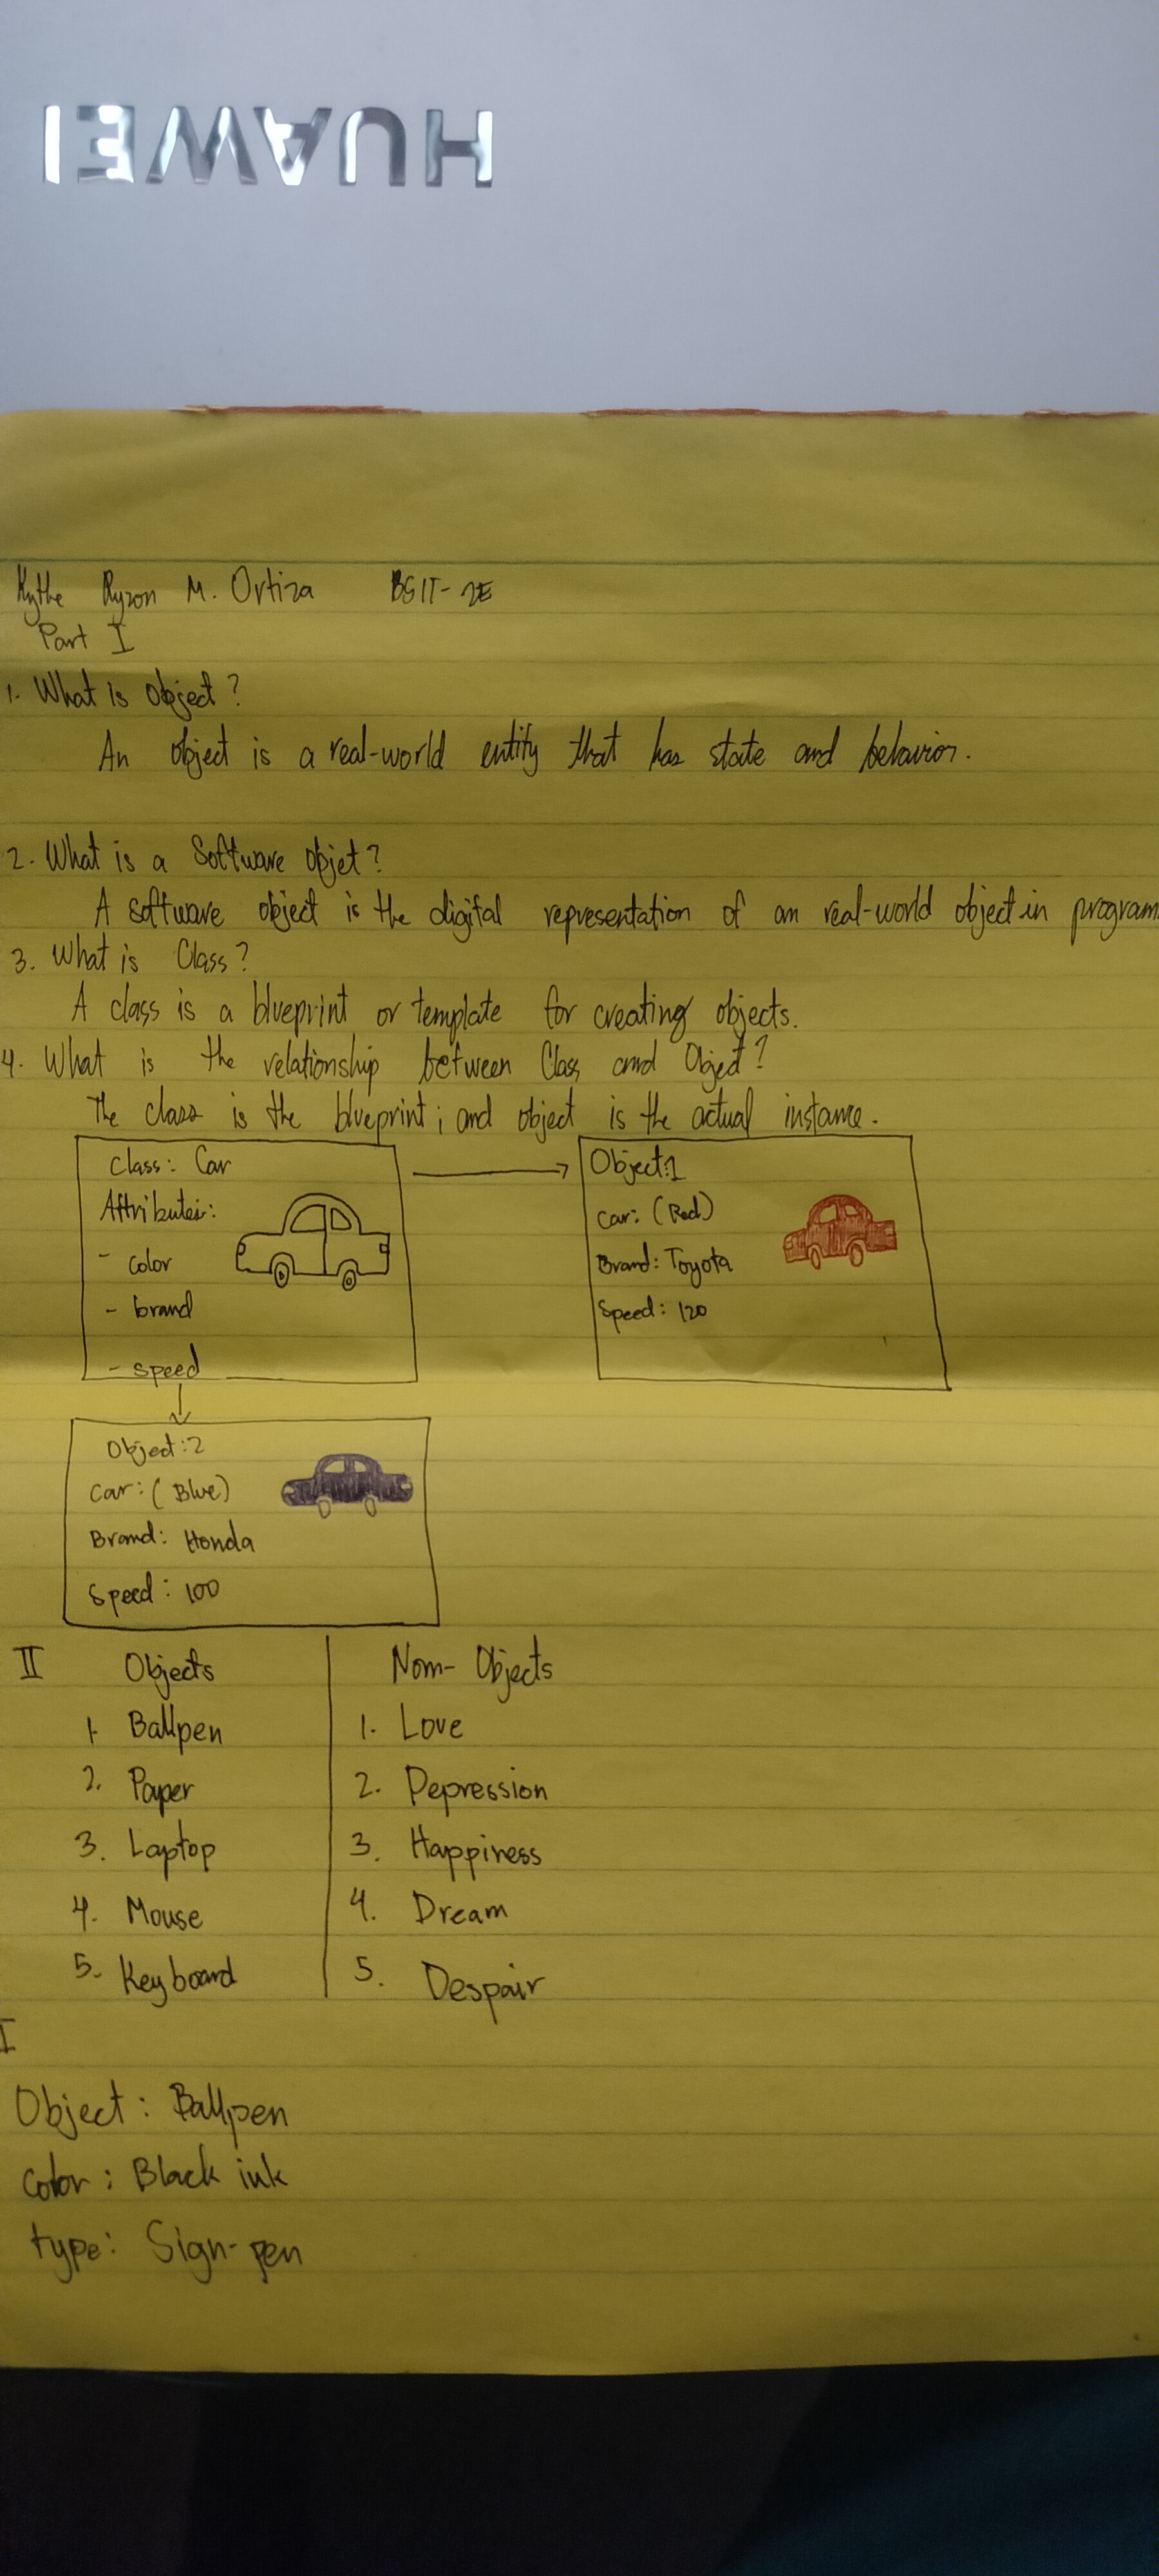 HUAWEI
Kythe Ryzon M. Ortiza BSIT-2E
Part I
1. What is object?
An object is a real-world entity that has state and behavior.
2. What is a Software objet?
A software object is the digital representation of an real-world object in program
3. What is Class?
A class is a blueprint or template for creating objects.
4. What is the relationship between Class and Object?
The class is the blueprint; and object is the actual instance.
Class: Car
Attributes:
- color
- brand
- speed
Object:1
Car: (Red)
Brand: Toyota
Speed: 120
Object:2
Car: (Blue)
Brand: Honda
Speed: 100
II Objects Non-Objects
1. Ballpen 1. Love
2. Paper 2. Depression
3. Laptop 3. Happiness
4. Mouse 4. Dream
5. Keyboard 5. Despair
I
Object: Ballpen
Color: Black ink
type: Sign-pen